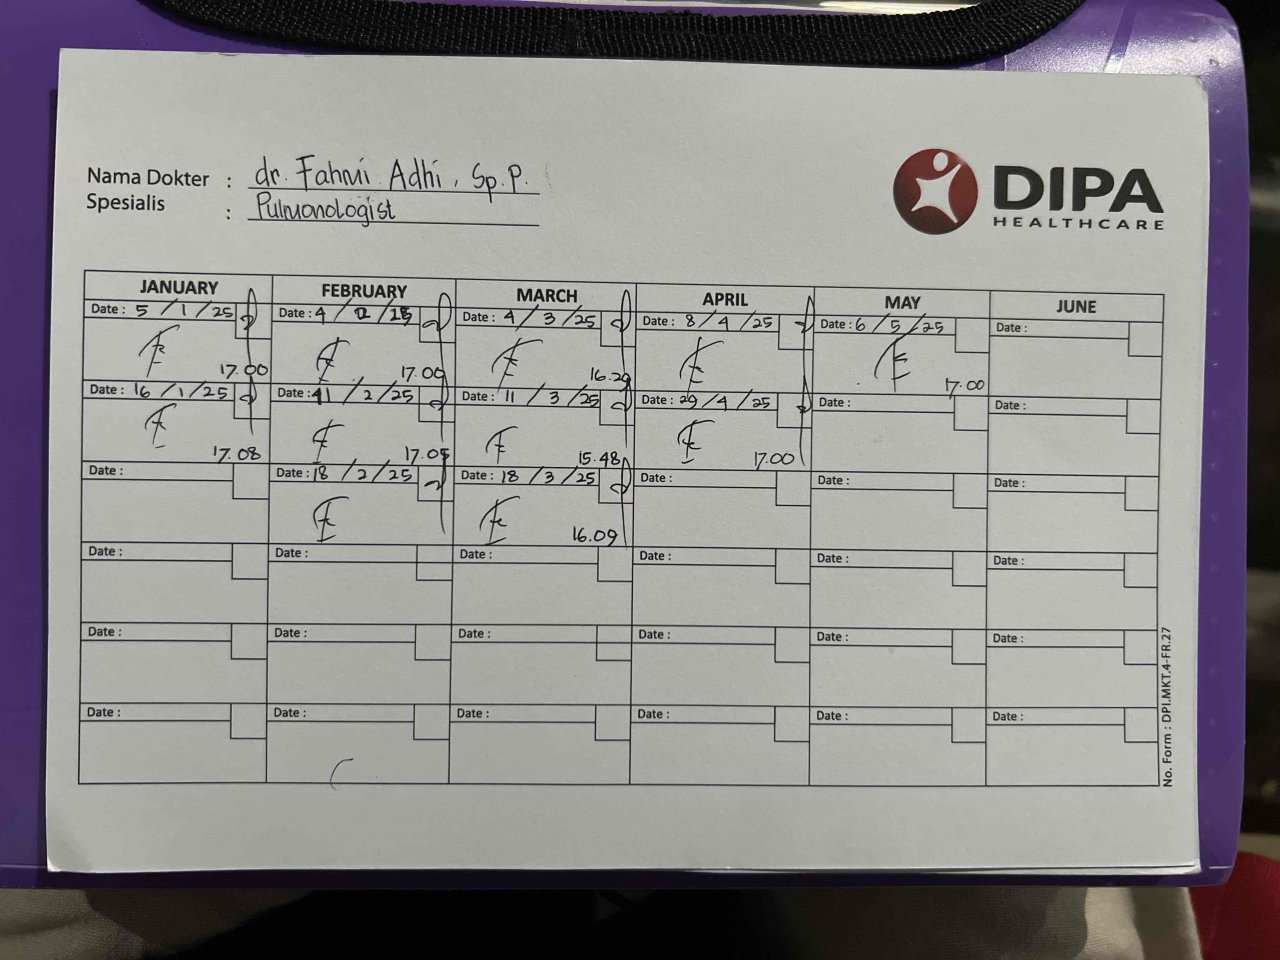 Nama Dokter : dr. Fahmi Adhi, Sp.P.
Spesialis : Pulmonologist
DIPA
HEALTHCARE
JANUARY FEBRUARY MARCH APRIL MAY JUNE
Date : 5 / 1 / 25 Date : 4 / 2 / 25 Date : 4 / 3 / 25 Date : 8 / 4 / 25 Date : 6 / 5 / 25 Date :
17.00 17.00 16.29 17.00
Date : 16 / 1 / 25 Date : 11 / 2 / 25 Date : 11 / 3 / 25 Date : 29 / 4 / 25 Date : Date :
17.08 17.05 15.48 17.00
Date : Date : 18 / 2 / 25 Date : 18 / 3 / 25 Date : Date : Date :
16.09
Date : Date : Date : Date : Date : Date :
Date : Date : Date : Date : Date : Date :
Date : Date : Date : Date : Date : Date :
No. Form : DPI.MKT.4-FR.27